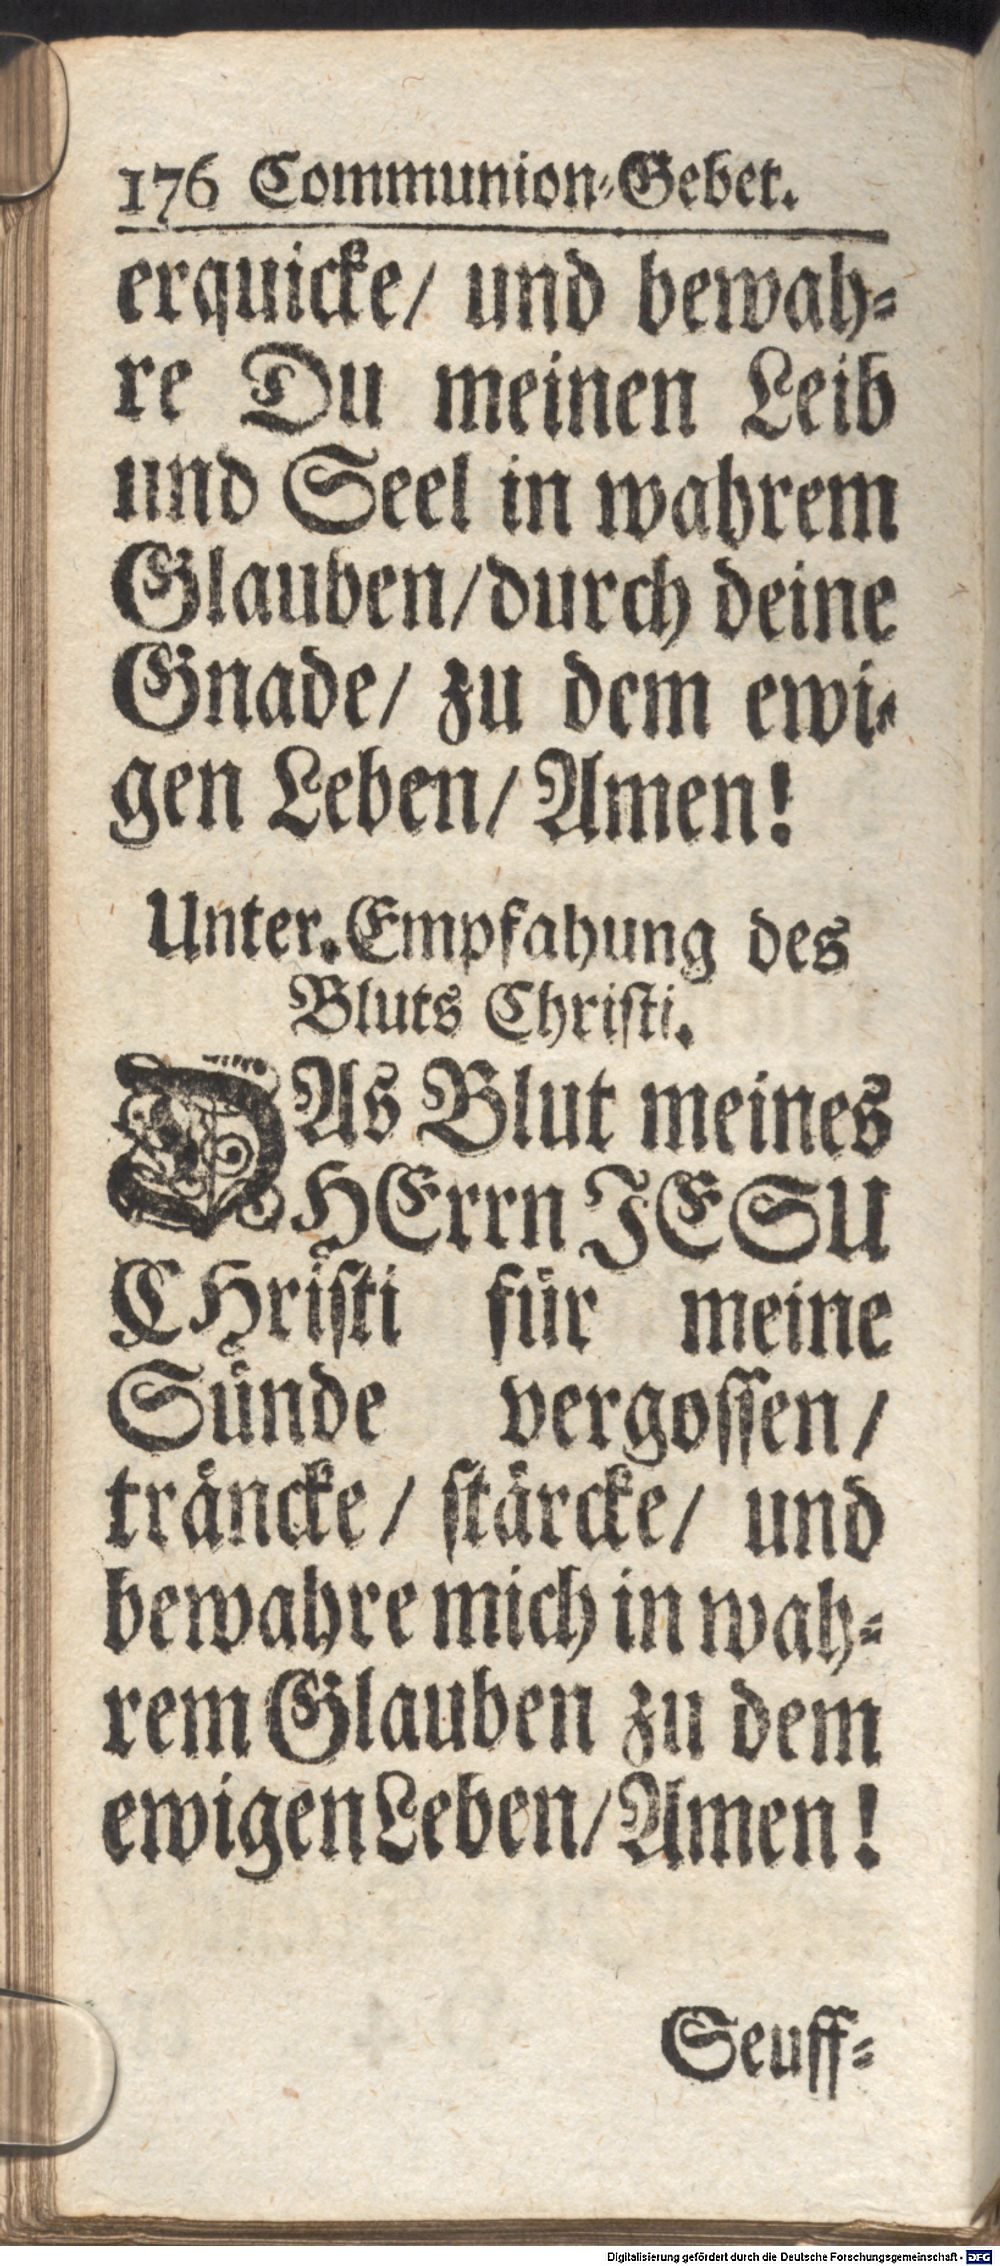 176 Communion-Gebet.
erquicke/ und bewah-
re Du meinen Leib
und Seel in wahrem
Glauben/durch deine
Gnade/ zu dem ewi-
gen Leben/ Amen!
Unter. Empfahung des
Bluts Christi.
DAs Blut meines
HErrn JESU
CHristi für meine
Sünde vergossen/
träncke/ stärcke/ und
bewahre mich in wah-
rem Glauben zu dem
ewigen Leben/ Amen!
Seuff-
Digitalisierung gefördert durch die Deutsche Forschungsgemeinschaft - DFG